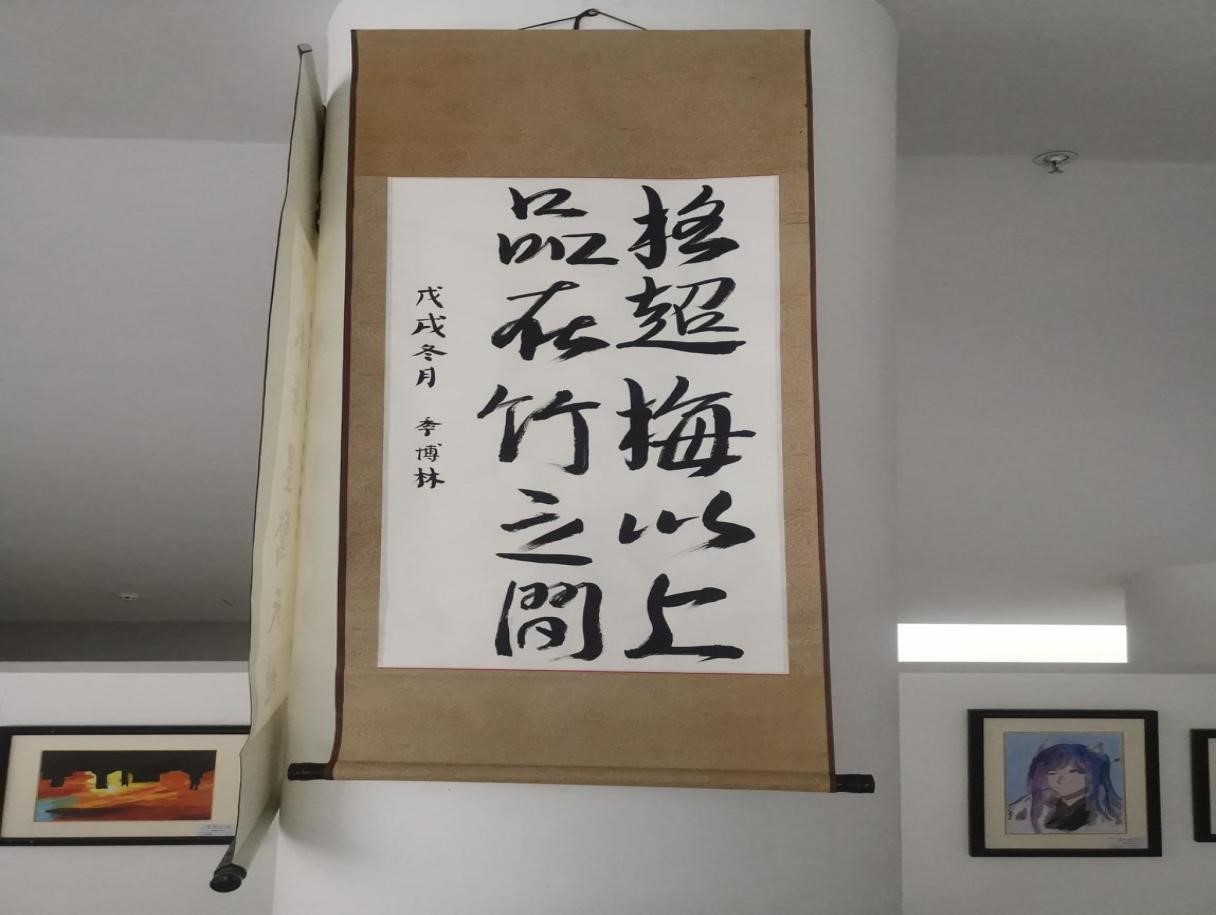 格超梅以上
品在竹之間
戊戌冬月 季博林